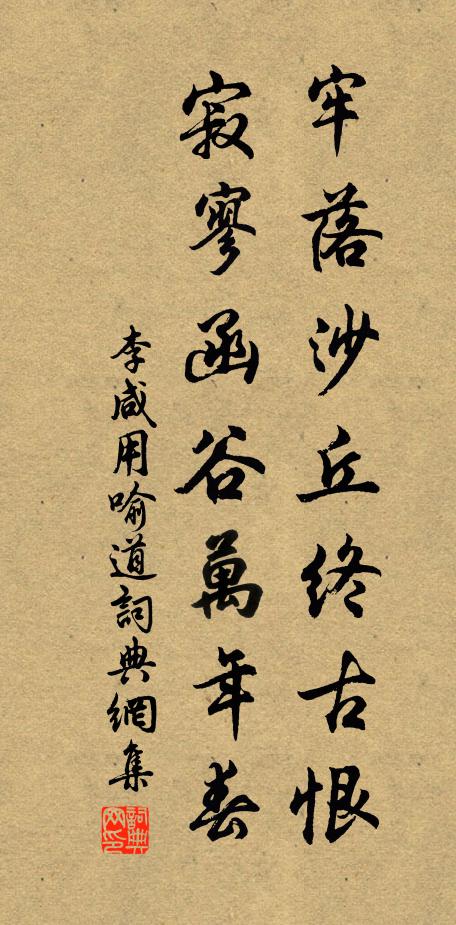 牢落沙丘終古恨
寂寥函谷萬年春
李咸用喻道詞典網集
詞典网印